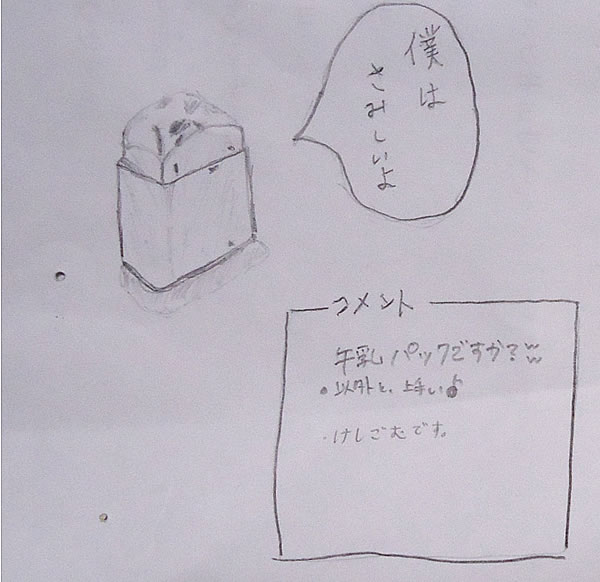 僕は
さみしいよ
コメント
牛乳パックですか?ww
・以外と、上手いよ
・けしごむです。